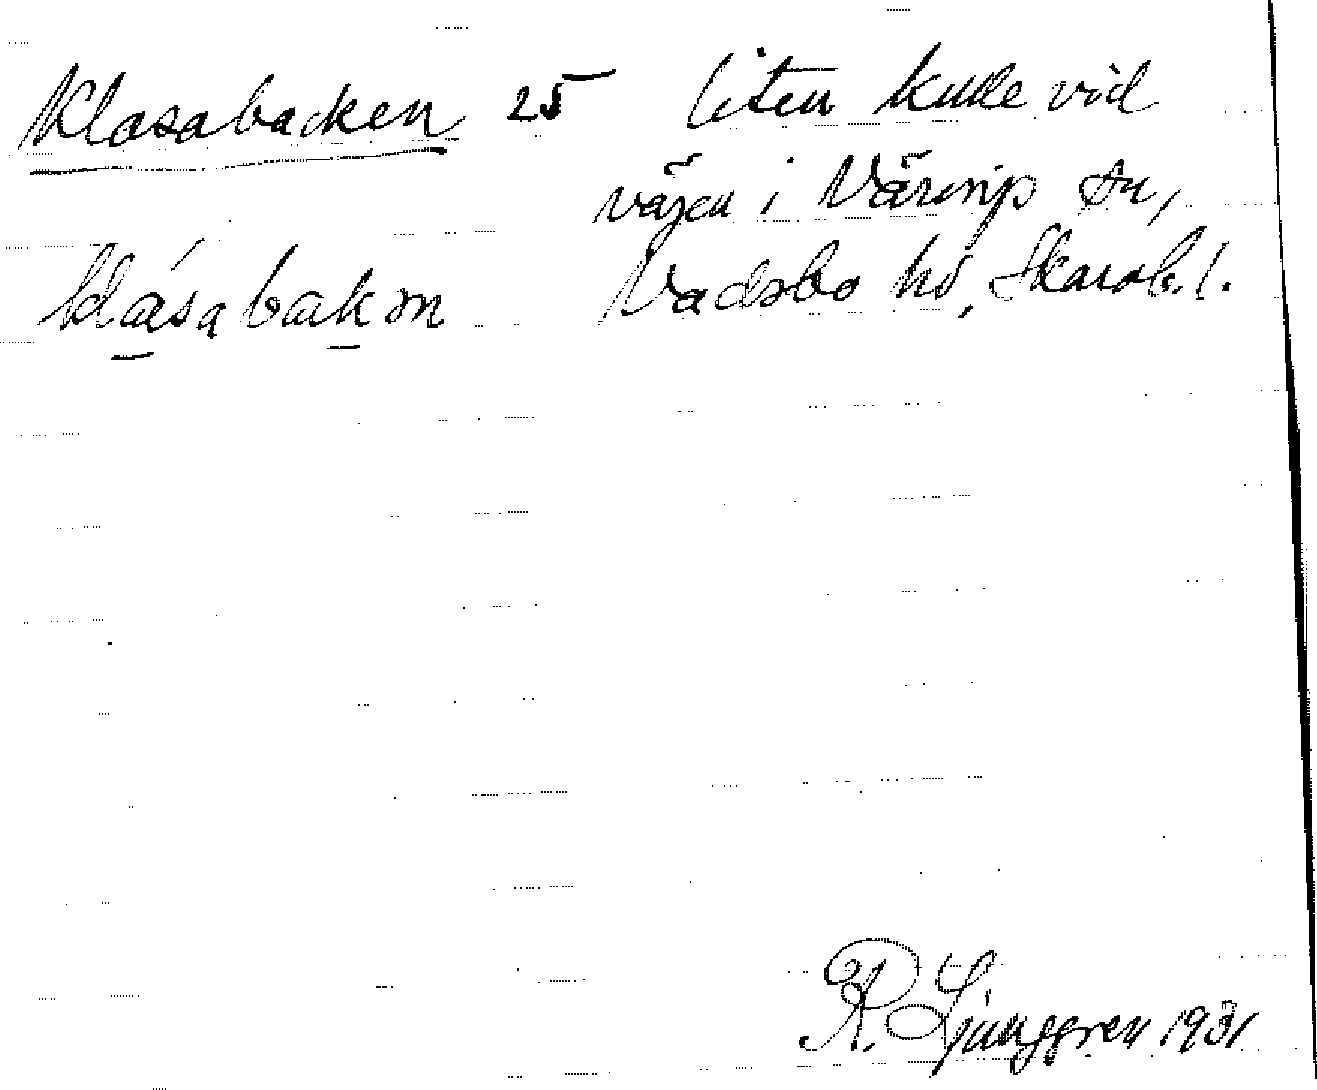 Klasabacken 25 liten kulle vid
vägen i Väring sn,
klásabakan Vadsbo hd, Skarab. l.
R. Ljunggren 1931